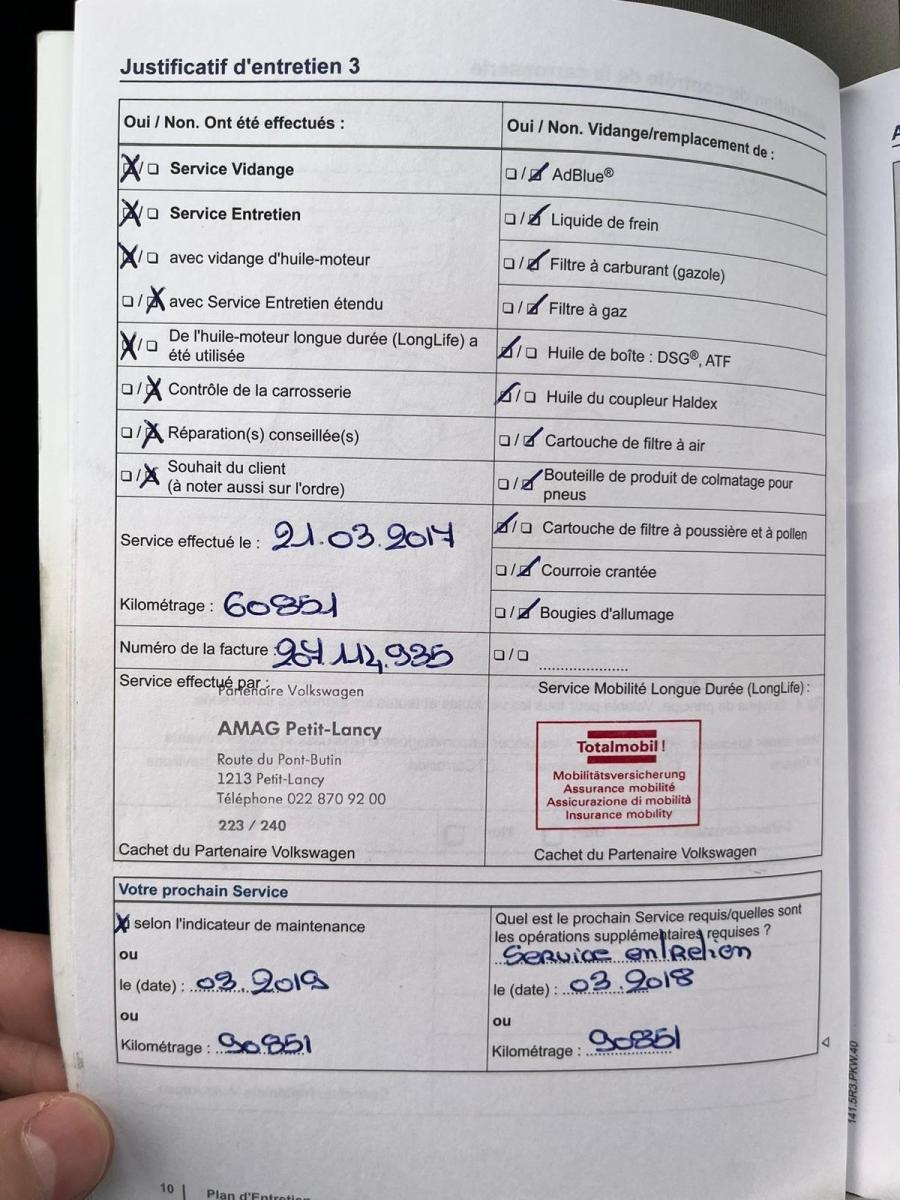 Justificatif d'entretien 3
Oui / Non. Ont été effectués :
☒/☐ Service Vidange
☒/☐ Service Entretien
☒/☐ avec vidange d'huile-moteur
☐/☒ avec Service Entretien étendu
☒/☐ De l'huile-moteur longue durée (LongLife) a
été utilisée
☐/☒ Contrôle de la carrosserie
☐/☒ Réparation(s) conseillée(s)
☐/☒ Souhait du client
(à noter aussi sur l'ordre)
Service effectué le : 21.03.2017
Kilométrage : 60851
Numéro de la facture :
Service effectué par :
Partenaire Volkswagen
AMAG Petit-Lancy
Route du Pont-Butin
1213 Petit-Lancy
Téléphone 022 870 92 00
223 / 240
Cachet du Partenaire Volkswagen
Oui / Non. Vidange/remplacement de :
☐/☑ AdBlue®
☐/☑ Liquide de frein
☐/☑ Filtre à carburant (gazole)
☐/☑ Filtre à gaz
☑/☐ Huile de boîte : DSG®, ATF
☑/☐ Huile du coupleur Haldex
☐/☑ Cartouche de filtre à air
☐/☑ Bouteille de produit de colmatage pour
pneus
☑/☐ Cartouche de filtre à poussière et à pollen
☐/☑ Courroie crantée
☐/☑ Bougies d'allumage
☐/☐ ....................
Service Mobilité Longue Durée (LongLife) :
Totalmobil !
Mobilitätsversicherung
Assurance mobilité
Assicurazione di mobilità
Insurance mobility
Cachet du Partenaire Volkswagen
Votre prochain Service
☒ selon l'indicateur de maintenance
ou
le (date) : 03.2019
ou
Kilométrage : 90851
Quel est le prochain Service requis/quelles sont
les opérations supplémentaires requises ?
Service entretien
le (date) : 03.2018
ou
Kilométrage : 90851
141.5R3.PKW.40
10 | Plan d'Entretien